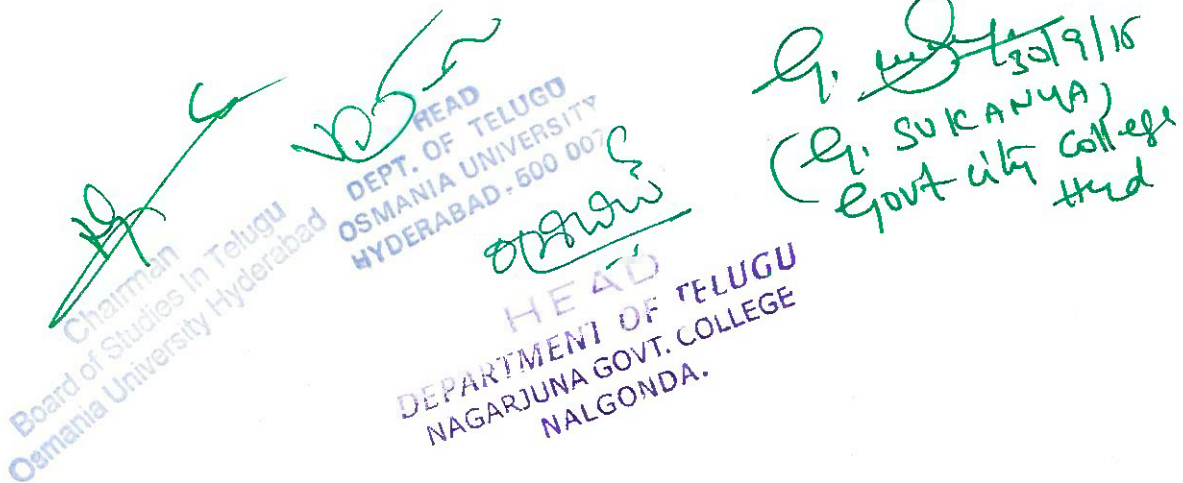 Chairman
Board of Studies In Telugu
Osmania University Hyderabad
HEAD
DEPT. OF TELUGU
OSMANIA UNIVERSITY
HYDERABAD-500 007
HEAD
DEPARTMENT OF TELUGU
NAGARJUNA GOVT. COLLEGE
NALGONDA.
G. 30/9/16
(G. SUKANYA)
Govt city College
Hyd